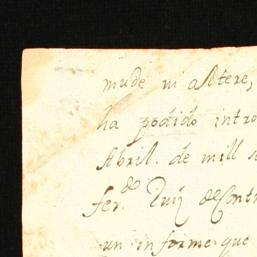 mude ni altere,
ha podido intro
Abril. de mill s
fer.do Ruiz de Contr
un informe que